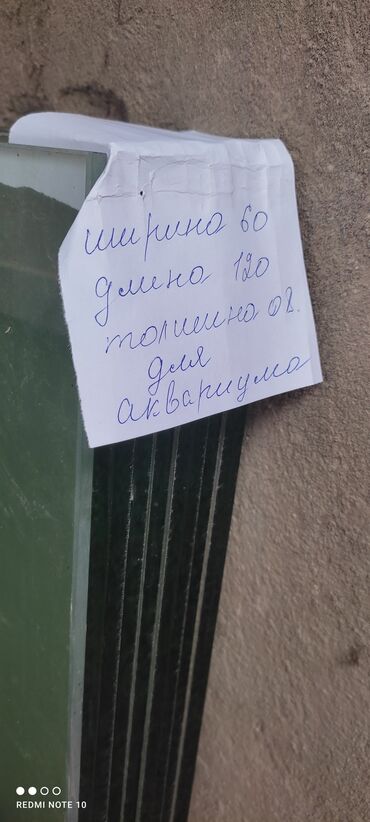 ширина 60
длина 120
толшина 08.
для
аквариума
REDMI NOTE 10